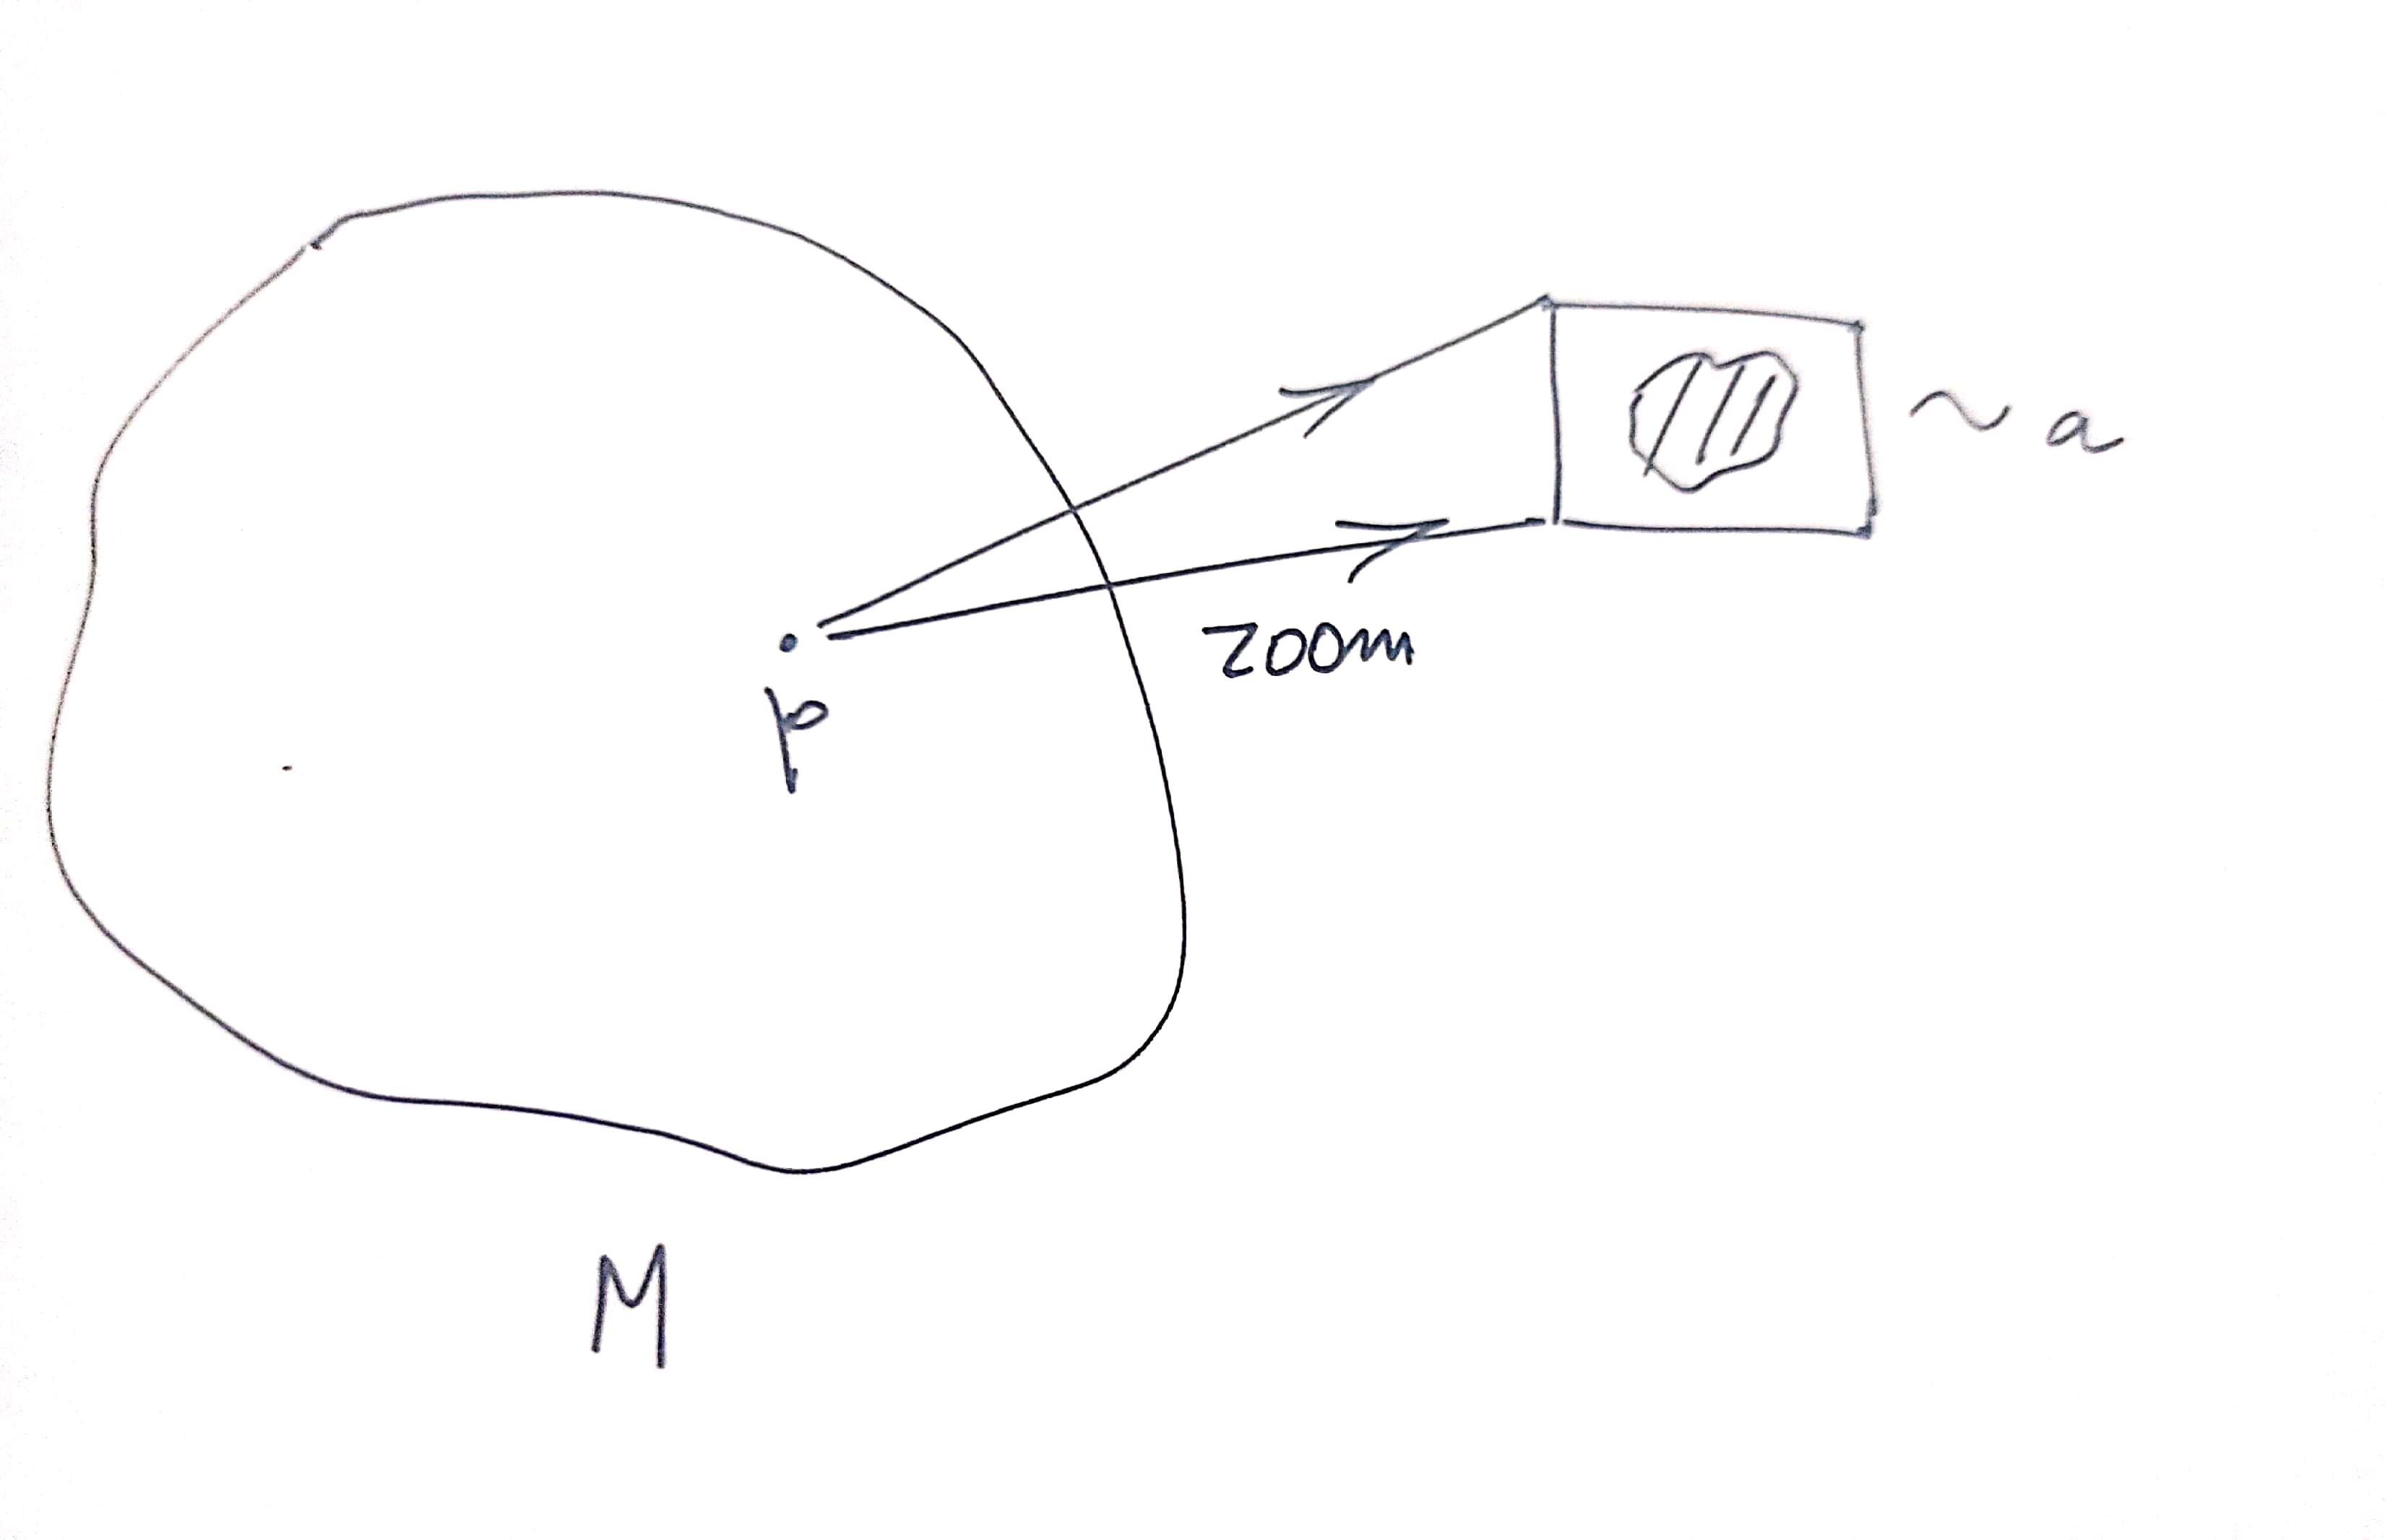 ~ a
zoom
p
M